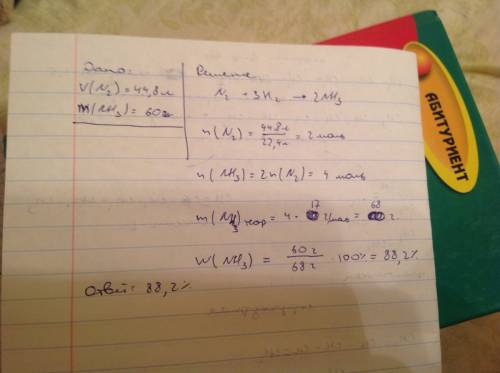 Дано:
V(N₂) = 44,8 л
m(NH₃) = 60г
Решение
N₂ + 3H₂ → 2NH₃
n(N₂) = 44,8 л / 22,4 л = 2 моль
n(NH₃) = 2n(N₂) = 4 моль
m(NH₃)теор = 4 · 17 г/моль = 68 г
W(NH₃) = 60 г / 68 г · 100% = 88,2%
Ответ: 88,2%
АБИТУРИЕНТ